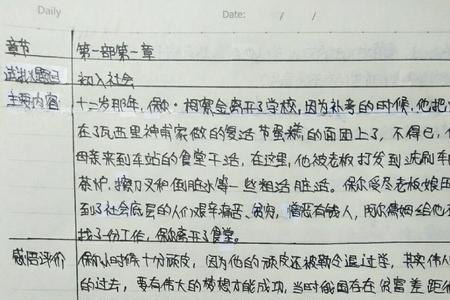 Daily Date: / /
章节 第一部第一章
试拟题目 初入社会
主要内容 十二岁那年，保尔·柯察金离开了学校，因为补考的时候，他把
在了瓦西里神甫家做的复活节蛋糕的面团上了，不得已，
母亲来到车站的食堂干活，在这里，他被老板打发到洗刷车
茶炉，擦刀叉和倒脏水等一些粗活脏活。保尔受尽老板娘
到了社会底层的人们艰辛痛苦、贫穷，憎恶有钱人，阿尔焦姆给他
找了份工作，保尔离开了食堂。
感悟评价 保尔小时候十分顽皮，因为他的顽皮还被勒令退过学，其实伟人
的过去，要有伟大的梦想才能成功，当时俄国存在贫富差距